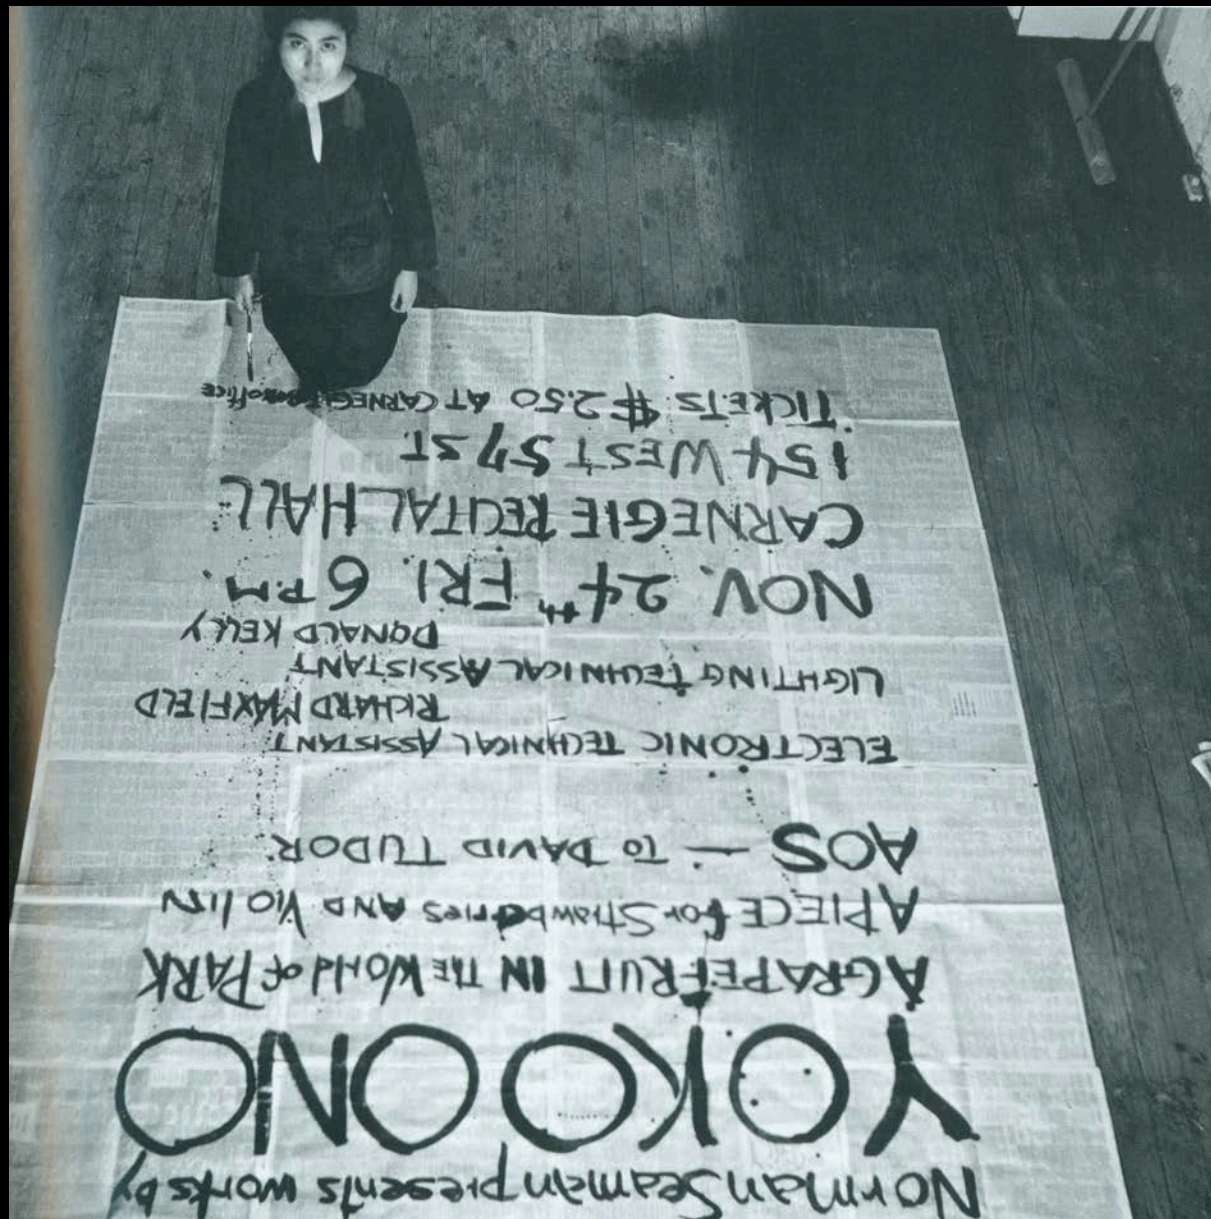 Norman Seaman presents works by
YOKO ONO
A GRAPEFRUIT IN THE WORld of PARK
A PIECE for StrawberRies AND VIOlIN
AOS — TO DAVID TUDOR
ELECTRONIC TECHNICAL ASSISTANT
RICHARD MAXFIELD
LIGHTING TECHNICAL ASSISTANT
DONALD KELLY
NOV. 24th FRI. 6 P.M.
CARNEGIE RECITAL HALL
154 WEST 57 ST.
TICKETS: $2.50 AT CARNEGIE BOX office